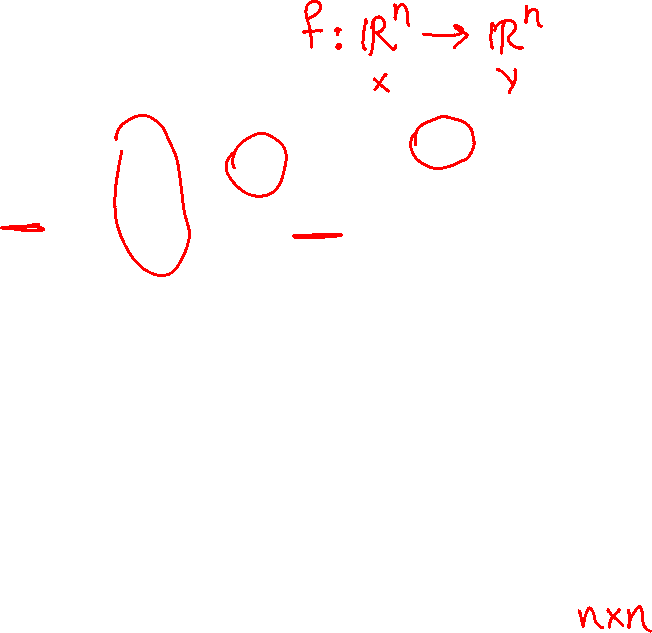 f: ℝⁿ → ℝⁿ
x y
n×n